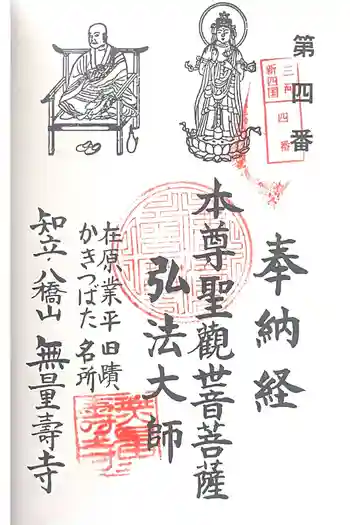 第四番
三河
新四国
四番
奉納経
本尊聖觀世音菩薩
弘法大師
在原業平旧蹟
かきつばた名所
知立・八橋山 無量壽寺
無量
壽寺